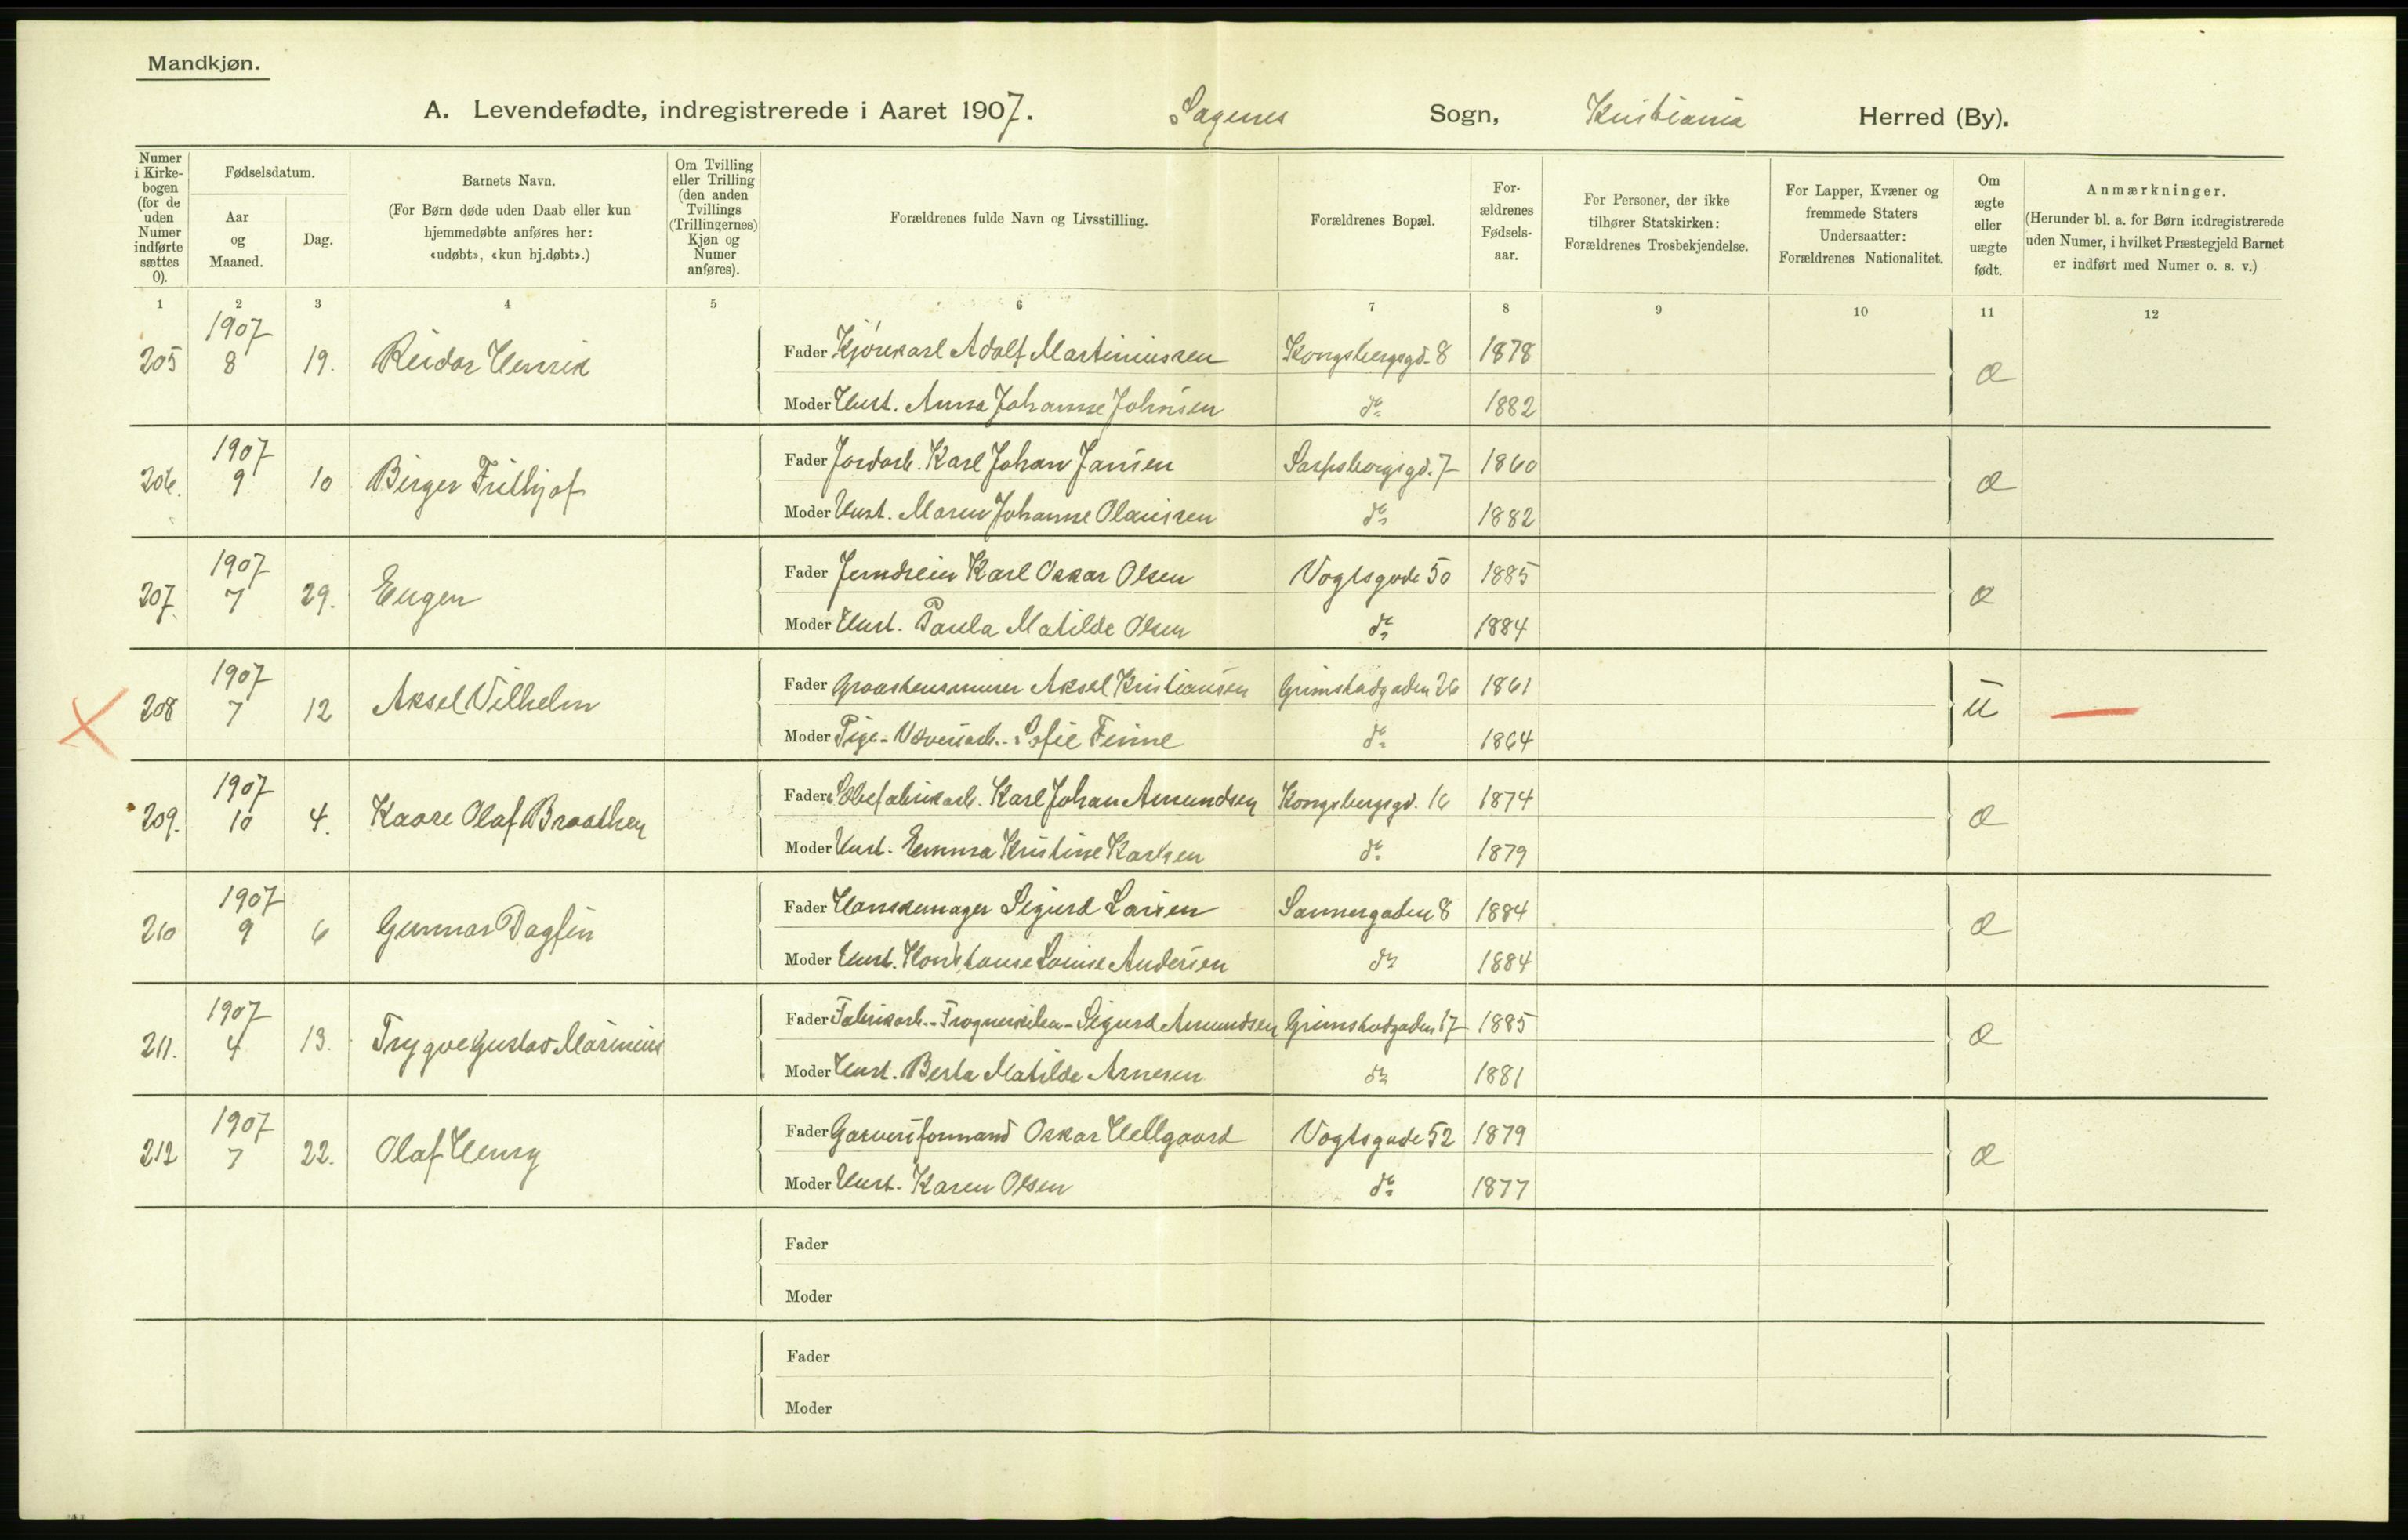 Mandkjøn.
A. Levendefødte, indregistrerede i Aaret 1907. Sagenes Sogn, Kristiania Herred (By).
Numer i Kirkebogen (for de uden Numer indførte sættes 0).
Fødselsdatum.
Aar og Maaned.
Dag.
Barnets Navn.
(For Børn døde uden Daab eller kun
hjemmedøbte anføres her:
«udøbt», «kun hj.døbt».)
Om Tvilling
eller Trilling
(den anden
Tvillings
(Trillingernes)
Kjøn og
Numer
anføres).
Forældrenes fulde Navn og Livsstilling.
Forældrenes Bopæl.
For-
ældrenes
Fødsels-
aar.
For Personer, der ikke
tilhører Statskirken:
Forældrenes Trosbekjendelse.
For Lapper, Kvæner og
fremmede Staters
Undersaatter:
Forældrenes Nationalitet.
Om
ægte
eller
uægte
født.
Anmærkninger.
(Herunder bl. a. for Børn indregistrerede
uden Numer, i hvilket Præstegjeld Barnet
er indført med Numer o. s. v.)
1 2 3 4 5 6 7 8 9 10 11 12
205 1907 8 19. Reidar Henrik
Fader Kjørekarl Adolf Martiniussen Kongsbergsgd. 8 1878
Moder Hust. Anna Johanne Johnsen do 1882
æ
206. 1907 9 10 Birger Frithjof
Fader Jordarb. Karl Johan Jansen Sarpsborgsgd. 7 1860
Moder Hust. Maren Johanne Olaussen do 1882
æ
207. 1907 7 29. Eugen
Fader Jerndreier Karl Oskar Olsen Vogtsgade 50 1885
Moder Hust. Paula Matilde Olsen do 1884
æ
208 1907 7 12 Aksel Vilhelm
Fader Graastensmurer Aksel Kristiansen Grimstadgaden 26 1861
Moder Pige - Væveriarb. - Sofie Finne do 1864
u
209. 1907 10 4. Kaare Olaf Braathen
Fader Karl Johan Amundsen Kongsbergsgd. 16 1874
Moder Hust. Emma Kristine Karlsen do 1879
æ
210 1907 9 6 Gunnar Dagfin
Fader Hanskemager Sigurd Larsen Sannergaden 8 1884
Moder Hust. Louise Andersen do 1884
æ
211. 1907 4 13. Trygve Gustav Marinius
Fader Fabrikarb. - Frognerkilen - Sigurd Amundsen Grimstadgaden 17 1885
Moder Hust. Berta Matilde Arnesen do 1881
æ
212 1907 7 22. Olaf Henry
Fader Garveriformand Oskar Hellgaard Vogtsgade 52 1879
Moder Hust. Karen Olsen do 1877
æ
Fader
Moder
Fader
Moder